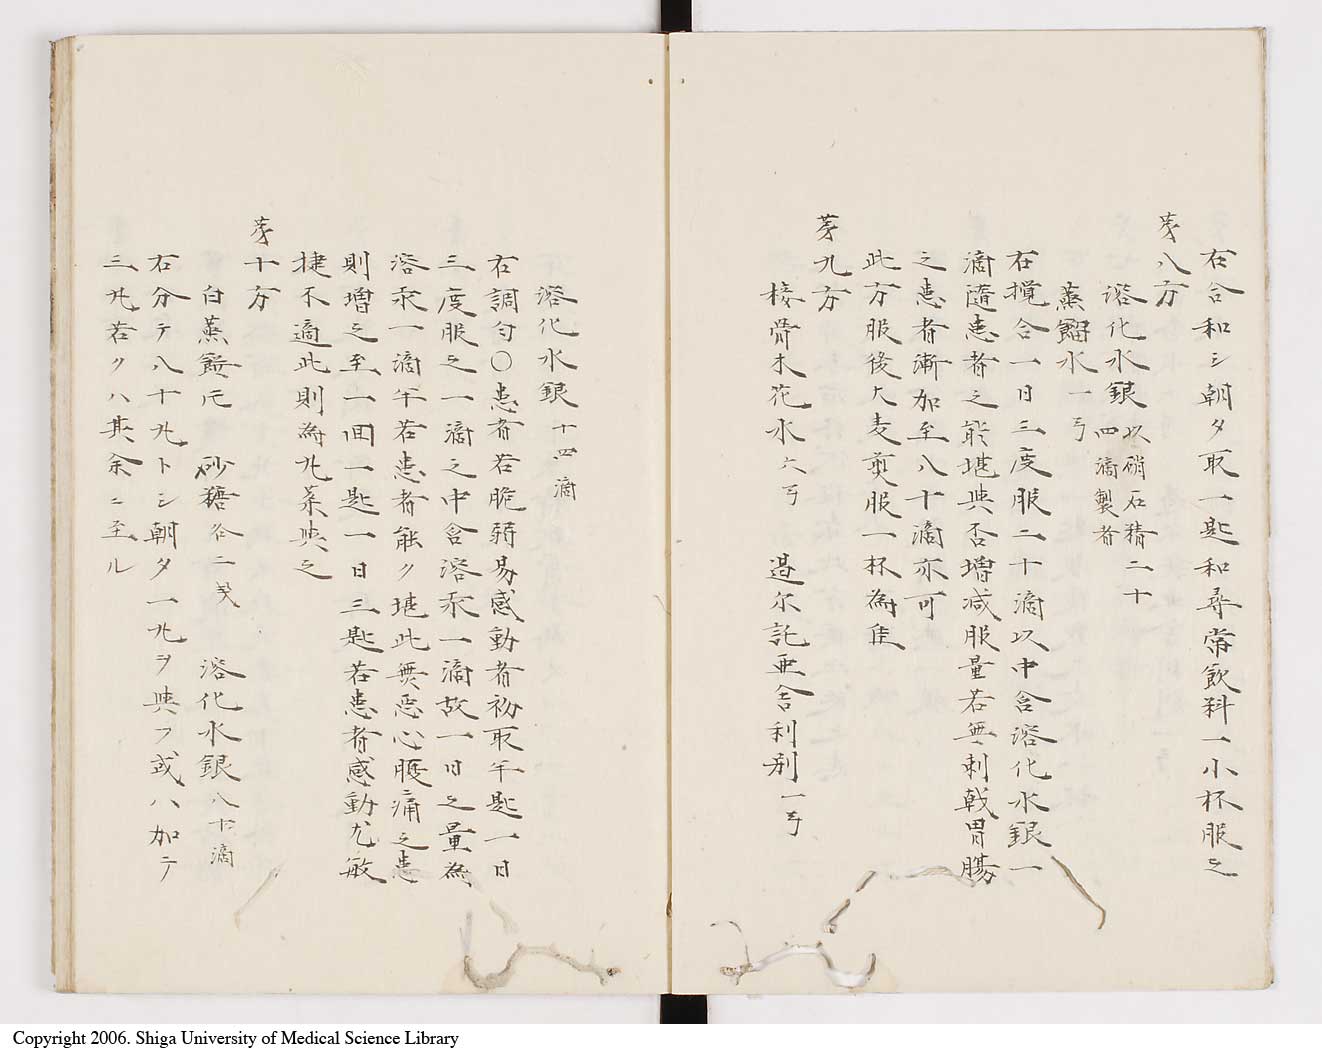 右合和シ朝夕取一匙和尋常飲料一小杯服之
茅八方
溶化水銀 以硝石精二十
四滴製者
蒸餾水 一弓
右攪合一日三度服二十滴以中含溶化水銀一
滴隨患者之能堪與否増减服量若無刺戟胃腸
之患者漸加至八十滴亦可
此方服後大麦煎服一杯為佳
茅九方
椄骨木花水 六弓 遏尓託亜舎利別 一弓
溶化水銀 十四滴
右調匀〇患者若脆弱易感動者初取半匙一日
三度服之一滴之中含溶汞一滴故一日之量為
溶汞一滴半若患者能ク堪此無悪心腹痛之患
則増之至一回一匙一日三匙若患者感動尤敏
捷不適此則為丸薬與之
茅十方
白蒸餅元 砂糖 各二戔 溶化水銀 八十滴
右分テ八十丸トシ朝夕一丸ヲ與フ或ハ加テ
三丸若クハ其余ニ至ル
Copyright 2006. Shiga University of Medical Science Library